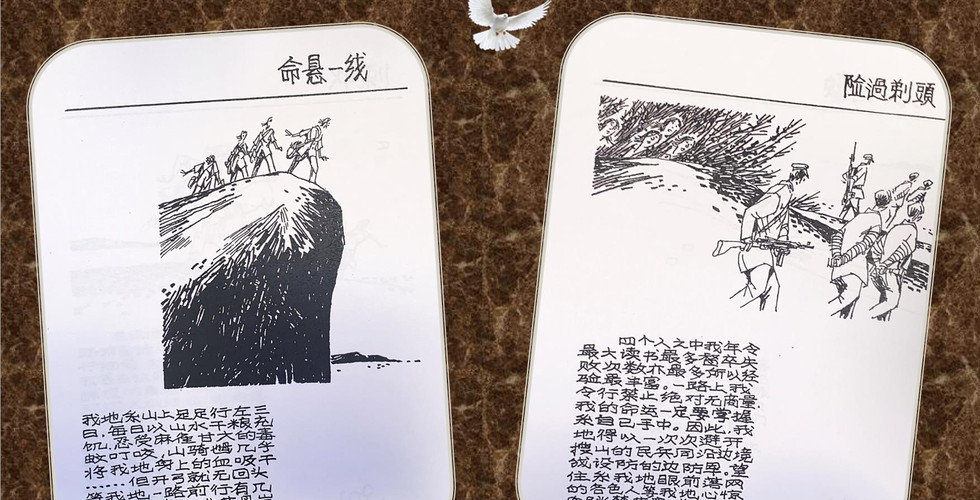 命悬一线
我地系山上足足行左三
日,每日以山水干粮充
饥,忍受麻雀甘大的毒
蚊叮咬,山骑嫲几乎
将我地身上的血吸干
……但开弓就无回头
箭我地一路前行有几
险過剃頭
四个人之中我年令
最大读书最多督卒失
败次数亦最多所以经
验最丰富。一路上我
令行禁止绝对无商量.
我的命运一定要掌握
系自己手中。因此,我
地得以一次次避开
搜山的民兵同沿边境
战设防的边防军。望
住系我地眼前落网
的各色人等我地心惊